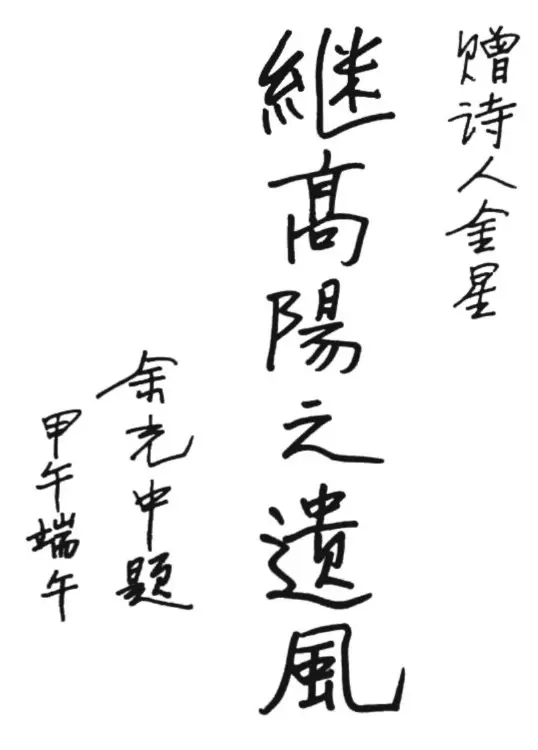 赠诗人金星
継髙陽之遺風
余光中题
甲午端午